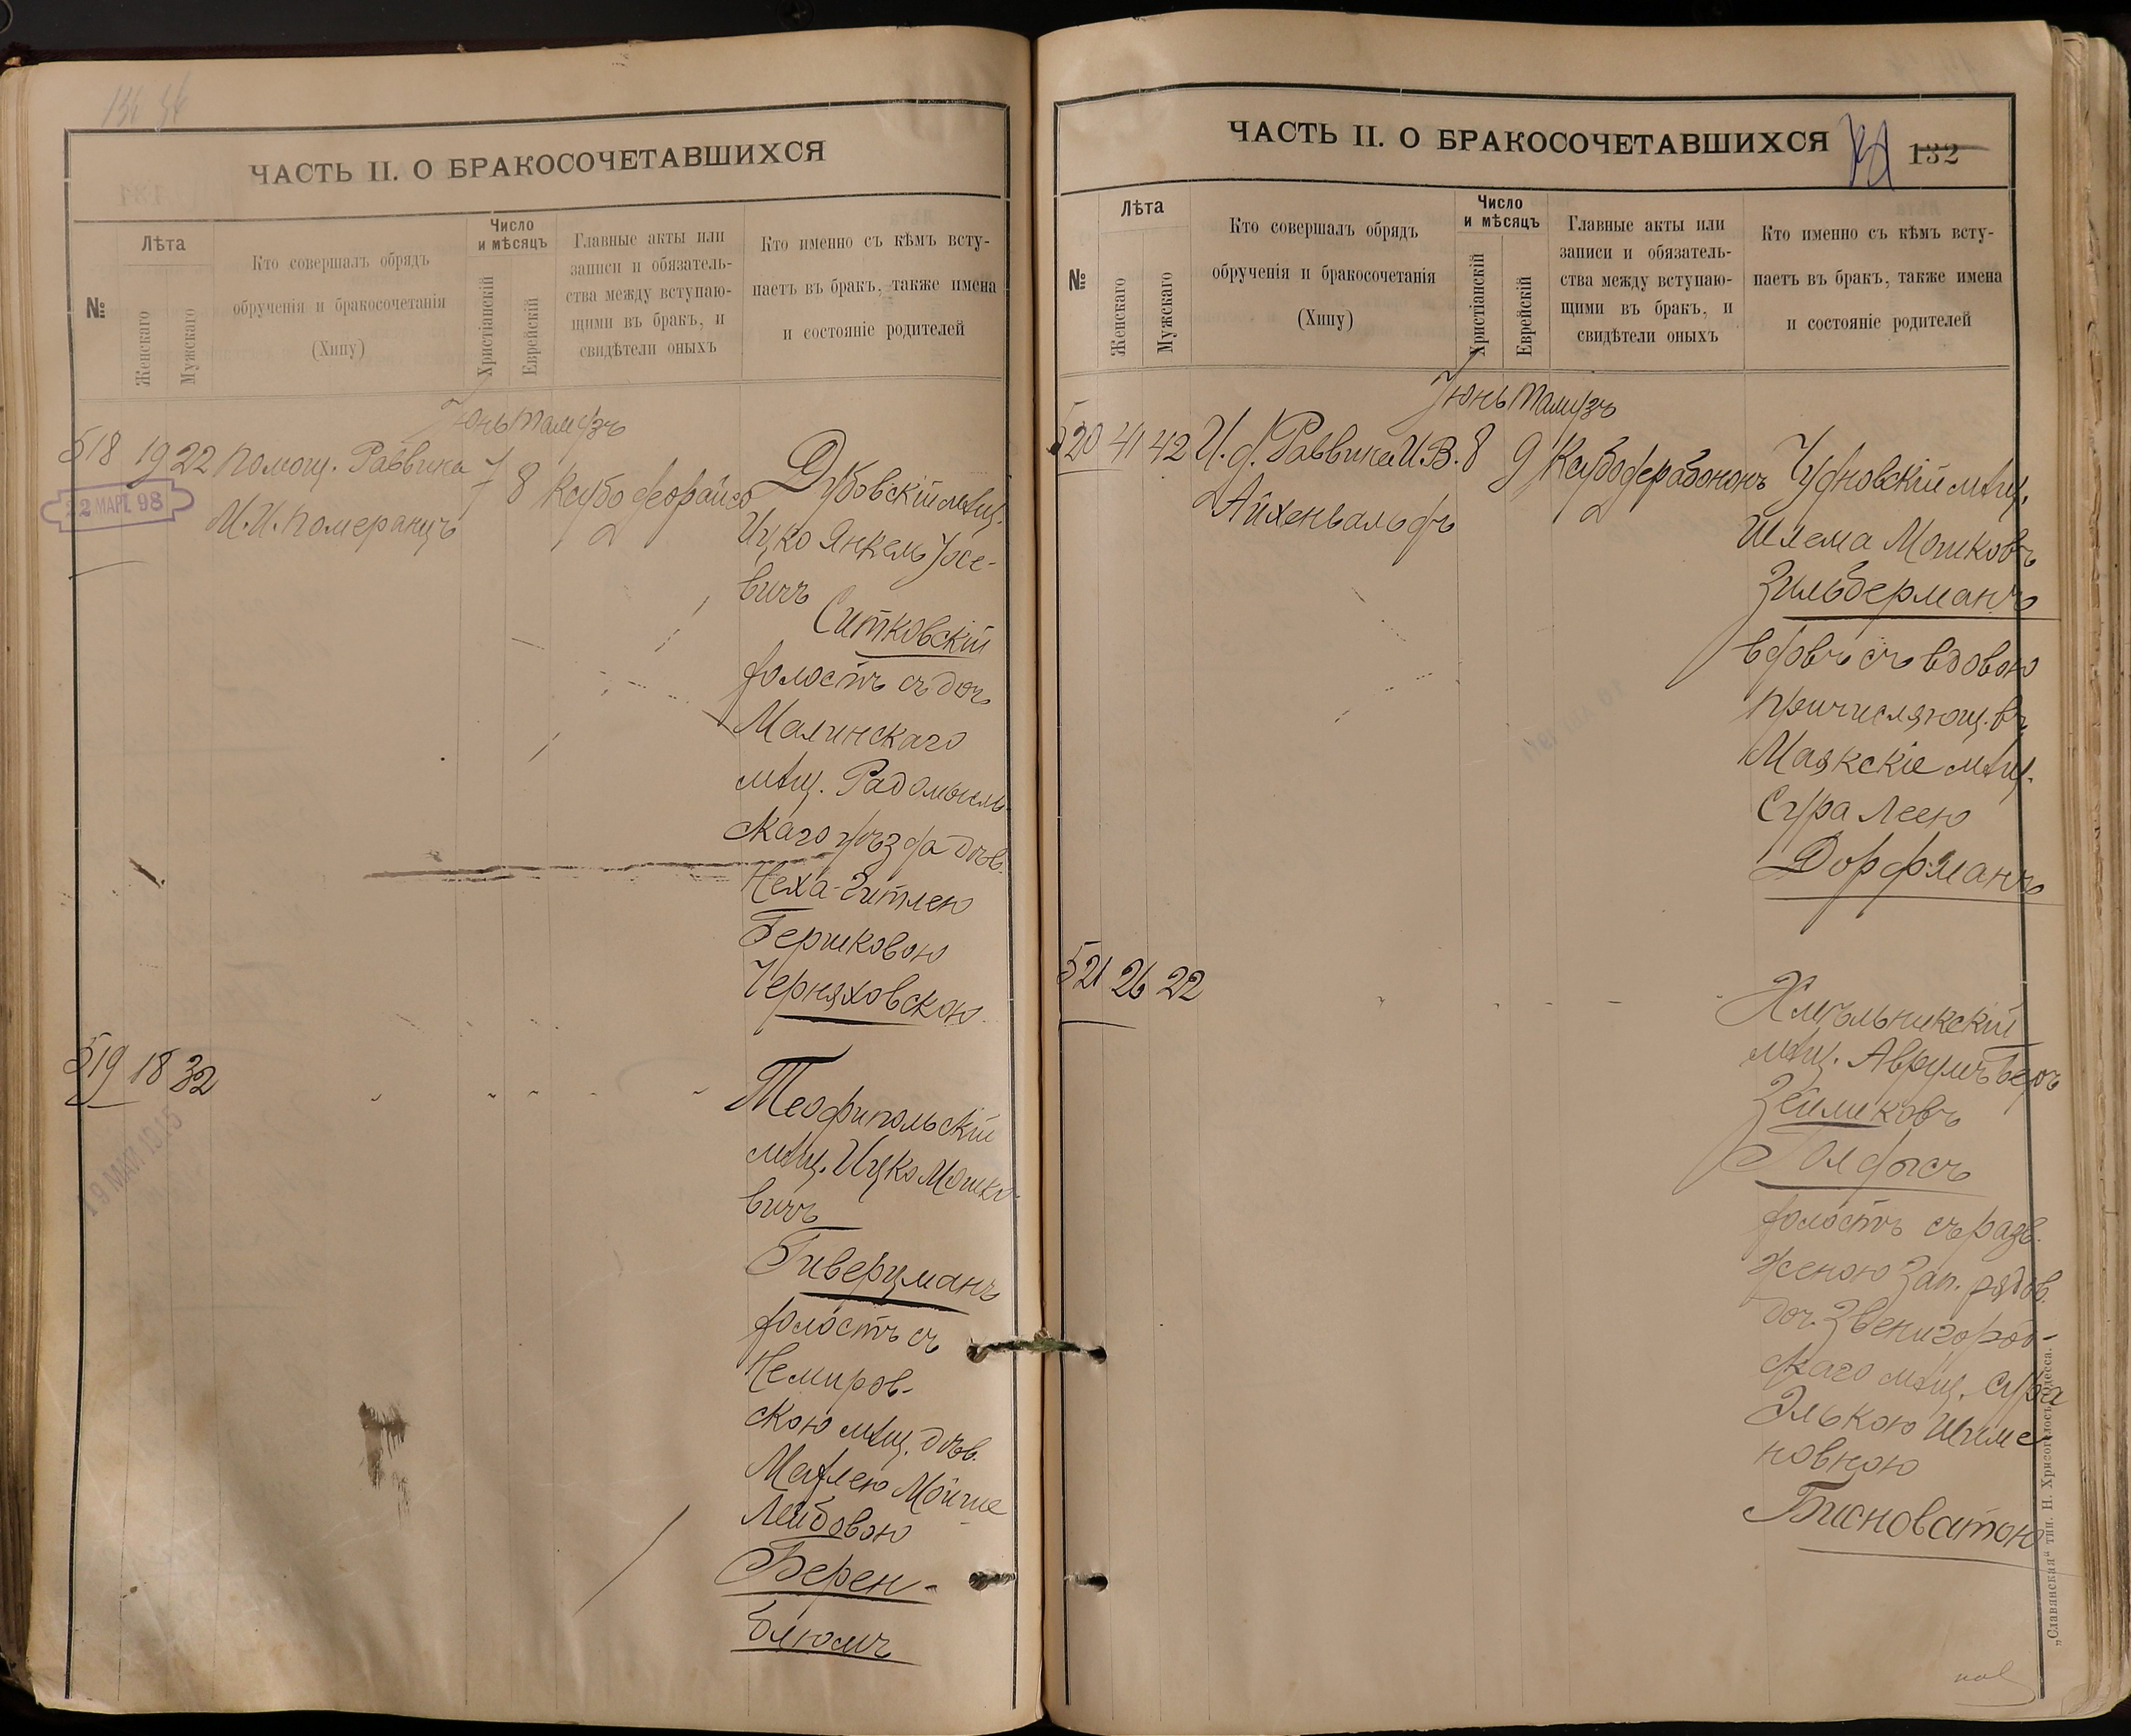 ЧАСТЬ II. О БРАКОСОЧЕТАВШИХСЯ
№
Лѣта
Женскаго
Мужскаго
Кто совершалъ обрядъ
обрученія и бракосочетанія
(Хипу)
Число
и мѣсяцъ
Христіанскій
Еврейскій
Главные акты или
записи и обязатель-
ства между вступаю-
щими въ бракъ, и
свидѣтели оныхъ
Кто именно съ кѣмъ всту-
паетъ въ бракъ, также имена
и состояніе родителей
Іюнь Тамузъ
518 19 22 Помощ. Раввина 7 8
22 МАРТ. 98
И.И. Померанцъ
Дубовскій мѣщ.
Ицко Янкель Іосе-
вичъ
Ситковскій
холостъ съ доч.
Малинскаго
мѣщ. Радомысль-
скаго уѣзда дѣв.
Неха-Гитлею
Берковою
Черняховскою
519 18 32
19 МАЙ 1915
Теофипольскій
мѣщ. Ицко Мошко-
вичъ
Гиверцманъ
холостъ съ
Немиров-
скою мѣщ. дѣв.
Лейбовою
Берен-
блюмъ
ЧАСТЬ II. О БРАКОСОЧЕТАВШИХСЯ
132
№
Лѣта
Женскаго
Мужскаго
Кто совершалъ обрядъ
обрученія и бракосочетанія
(Хипу)
Число
и мѣсяцъ
Христіанскій
Еврейскій
Главные акты или
записи и обязатель-
ства между вступаю-
щими въ бракъ, и
свидѣтели оныхъ
Кто именно съ кѣмъ всту-
паетъ въ бракъ, также имена
и состояніе родителей
Іюнь Тамузъ
520 41 42 И. д. Раввина И.В. 8 9
Айхенвальдъ
Чудновскій мѣщ.
Шлема Мошковъ
Зильберманъ
вдовъ съ вдовою
причисляющ. въ
Маякскіе мѣщ.
Сура Леею
Дорфманъ
521 26 22
Хмѣльникскій
мѣщ. Аврумъ Беръ
Зейликовъ
холостъ съ разв.
женою зап. рядов.
доч. Звенигород-
скаго мѣщ. Сура
Элькою Шиме
новною
Бисноватою
„Славянская" тип. Н. Хрисогелосъ, Одесса.